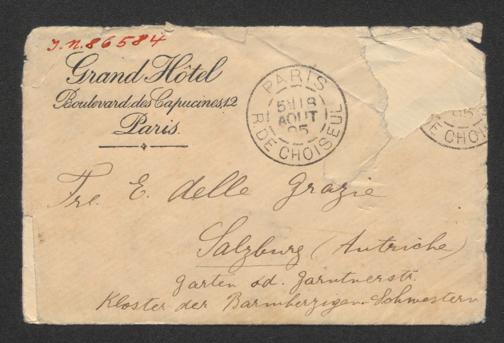 I.N.86584
Grand Hôtel
Boulevard des Capucines, 12
Paris.
PARIS
5H18
AOUT
05
R. DE CHOISEUL
05
E CHOISE
Frl. E. delle Grazie
Salzburg (Autriche)
Garten od. Gärtnerstr.
Kloster der Barmherzigen Schwestern